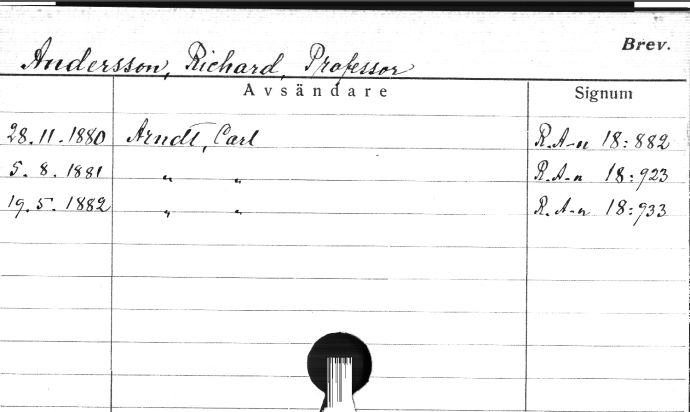 Brev.
Andersson, Richard, Professor
Avsändare Signum
28.11.1880 Arndt, Carl R.A-n 18:882
5.8.1881 " " R.A-n 18:923
19.5.1882 " " R.A-n 18:933